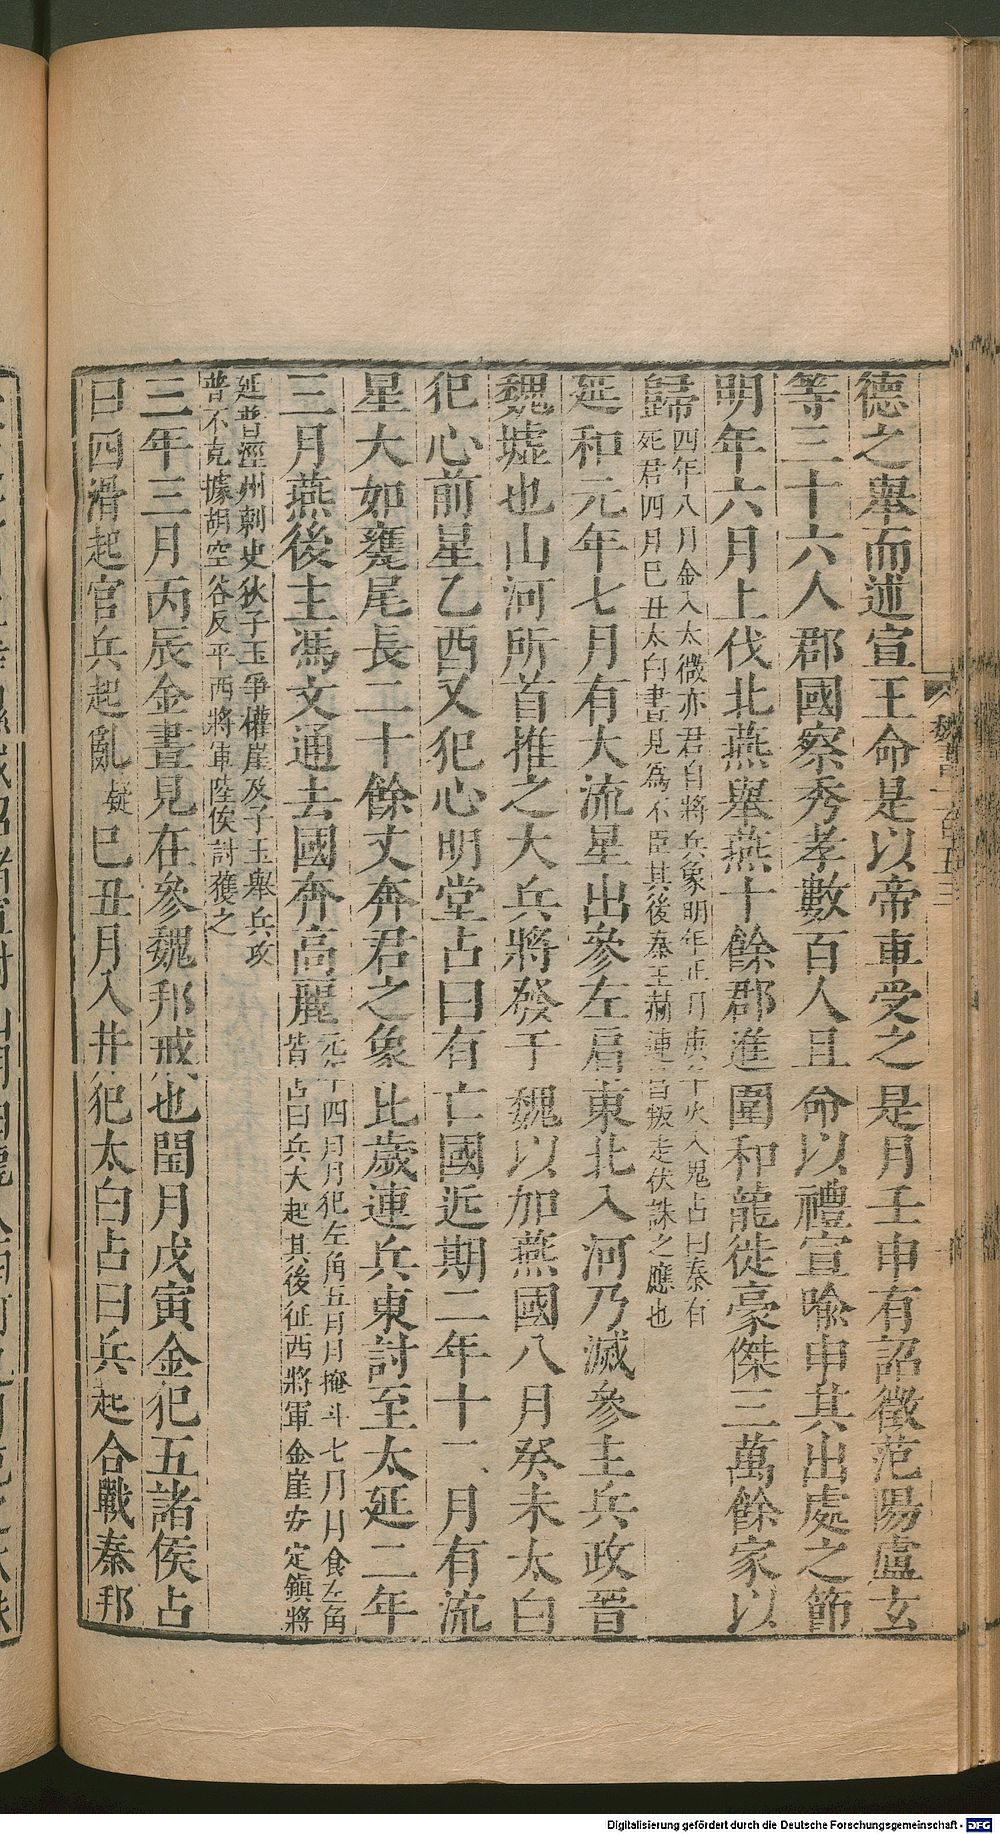 德之舉而述宣王命是以帝車受之是月壬申有詔徵范陽盧玄
等三十六人郡國察秀孝數百人且命以禮宣喻申其出處之節
明年六月上伐北燕舉燕十餘郡進圍和龍徙豪傑三萬餘家以
歸
四年八月金入太微亦君自將兵象明年正月庚午火入鬼占曰秦有
死君四月己丑太白晝見為不臣其後秦王赫連昌叛走伏誅之應也
延和元年七月有大流星出參左肩東北入河乃滅參主兵政晉
魏墟也山河所首推之大兵將發于魏以加燕國八月癸未太白
犯心前星乙酉又犯心明堂占曰有亡國近期二年十二月有流
星大如甕尾長二十餘丈奔君之象比歲連兵東討至太延二年
三月燕後主馮文通去國奔高麗
元年四月月犯左角五月月掩斗七月月食左角
皆占曰兵大起其後征西將軍金崖安定鎮將
延普涇州刺史狄子玉爭權崖及子玉舉兵攻
普不克據胡空谷反平西將軍陸俟討獲之
三年三月丙辰金晝見在參魏邦戒也閏月戊寅金犯五諸侯占
曰四滑起官兵起亂疑己丑月入井犯太白占曰兵起合戰秦邦
魏書一百五三
Digitalisierung gefördert durch die Deutsche Forschungsgemeinschaft - DFG